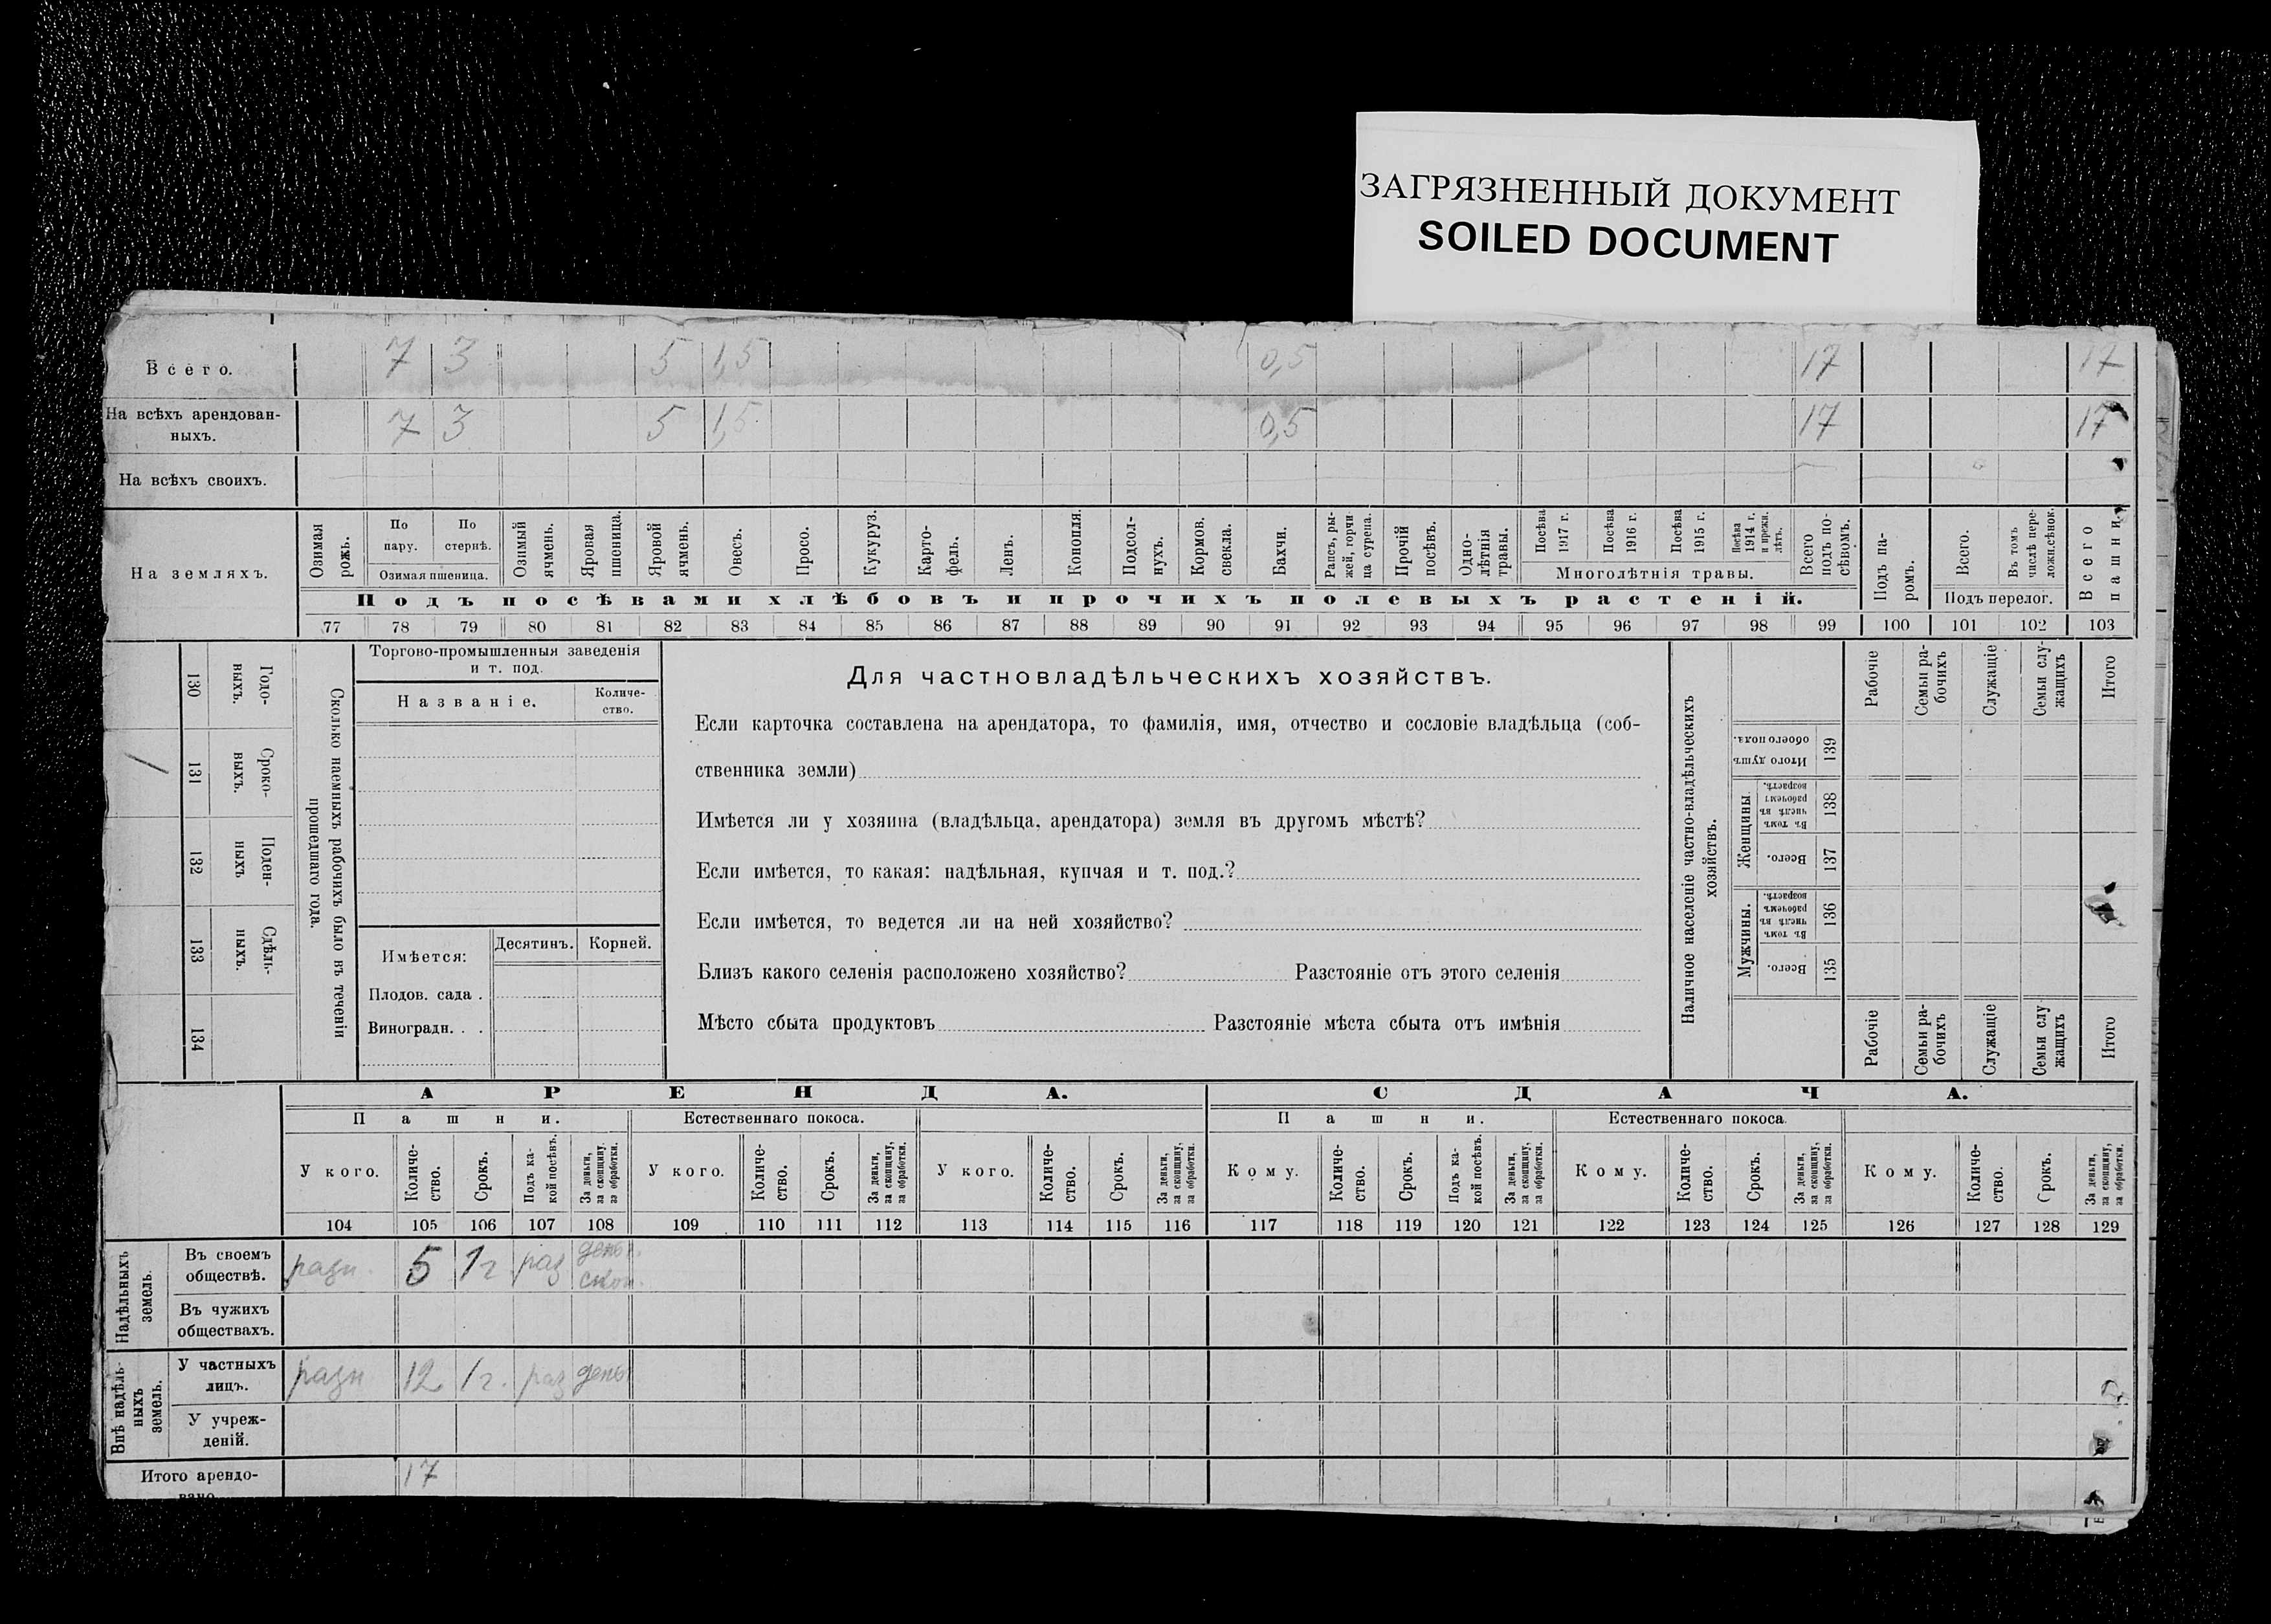 ЗАГРЯЗНЕННЫЙ ДОКУМЕНТ
SOILED DOCUMENT
Всего. 7 3 5 1,5 0,5 17 17
На всѣхъ арендован-
ныхъ. 7 3 5 1,5 0,5 17 17
На всѣхъ своихъ.
На земляхъ.
Озимая рожь.
По пару.
По стернѣ.
Озимая пшеница.
Озимый ячмень.
Яровая пшеница.
Яровой ячмень.
Овесъ.
Просо.
Кукуруз.
Карто-
фель.
Ленъ.
Конопля.
Подсол-
нухъ.
Кормов.
свекла.
Бахчи.
Рапсъ, ры-
жей, горчи-
ца сурепа.
Прочій
посѣвъ.
Одно-
лѣтнія
травы.
Посѣва 1917 г.
Посѣва 1916 г.
Посѣва 1915 г.
Посѣва 1914 г. и прежн. лѣтъ.
Многолѣтнія травы.
Всего
подъ по-
сѣвомъ.
Подъ па-
ромъ.
Всего.
Въ томъ
числѣ пере-
ложн.сѣнок.
Подъ перелог.
Всего
пашни.
Подъ посѣвами хлѣбовъ и прочихъ полевыхъ растеній.
77 78 79 80 81 82 83 84 85 86 87 88 89 90 91 92 93 94 95 96 97 98 99 100 101 102 103
130 Годо-
ныхъ.
131 Сроко-
выхъ.
132 Поден-
ныхъ
133 Сдѣль-
ныхъ.
134
Сколько наемныхъ рабочихъ было въ теченіи
прошедшаго года.
Торгово-промышленныя заведенія
и т. под.
Названіе.
Количе-
ство.
Имѣется:
Десятинъ. Корней.
Плодов. сада .
Виноградн. . .
Для частновладѣльческихъ хозяйствъ.
Если карточка составлена на арендатора, то фамилія, имя, отчество и сословіе владѣльца (соб-
ственника земли)
Имѣется ли у хозяина (владѣльца, арендатора) земля въ другомъ мѣстѣ?
Если имѣется, то какая: надѣльная, купчая и т. под.?
Если имѣется, то ведется ли на ней хозяйство?
Близъ какого селенія расположено хозяйство? Разстояніе отъ этого селенія
Мѣсто сбыта продуктовъ Разстояніе мѣста сбыта отъ имѣнія
Наличное населеніе частно-владѣльческихъ
хозяйствъ.
Рабочіе
Семьи ра-
бочихъ
Служащіе
Семьи слу-
жащихъ
Итого
Итого душъ
обоего пола.
139
Женщины
Въ томъ
числѣ въ
рабочемъ
возрастѣ.
138
Всего.
137
Мужчины.
Въ томъ
числѣ въ
рабочемъ
возрастѣ.
136
Всего.
135
Рабочіе
Семьи ра-
бочихъ
Служащіе
Семьи слу
жащихъ
Итого
АРЕНДА. СДАЧА.
Пашни. Естественнаго покоса. Пашни. Естественнаго покоса.
У кого.
Количе-
ство.
Срокъ.
Подъ ка-
кой посѣвъ.
За деньги,
за скопщину,
за обработки.
У кого.
Количе-
ство.
Срокъ.
За деньги,
за скопщину,
за обработки.
У кого.
Количе-
ство.
Срокъ.
За деньги,
за скопщину,
за обработки.
Кому.
Количе-
ство.
Срокъ.
Подъ ка-
кой посѣвъ.
За деньги,
за скопщину,
за обработки.
Кому.
Количе-
ство.
Срокъ.
За деньги,
за скопщину,
за обработки.
Кому.
Количе-
ство.
Срокъ.
За деньги,
за скопщину,
за обработки.
104 105 106 107 108 109 110 111 112 113 114 115 116 117 118 119 120 121 122 123 124 125 126 127 128 129
Надѣльныхъ
земель.
Въ своемъ
обществѣ. разн. 5 1 г раз деньг.
скоп.
Въ чужихъ
обществахъ.
Внѣ надѣль-
ныхъ
земель.
У частныхъ
лицъ. разн 12 1 г. раз день
У учреж-
деній.
Итого арендо-
вано 17